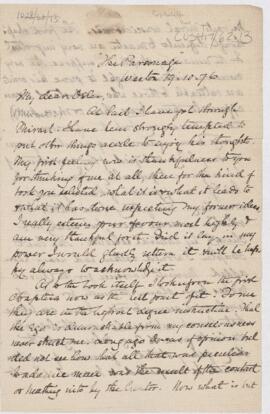 The Parsonage
Weston 19.10.76
My dear Osler,
At last I have got through
I have been strongly tempted to
put other things aside to enjoy his thoughts.
My first feeling now is thankfulness to you
for thinking of me at all then for the kind of
book you selected, what it is & what it leads to
what it has done respecting my former ideas
I really esteem your favour most highly &
am very thankful for it. Did it lay in my
power I would gladly return it
by always to acknowledge it.
As to the book itself I look upon the first
Chapters now as the best part of it. To me
they are in the highest degree instructive. That
the Ego is demonstrable from my consciousness
never struck me. Long ago I was of opinion but
did not see how that all that was peculiar
to
or breathing into by the Creator. Now what is but